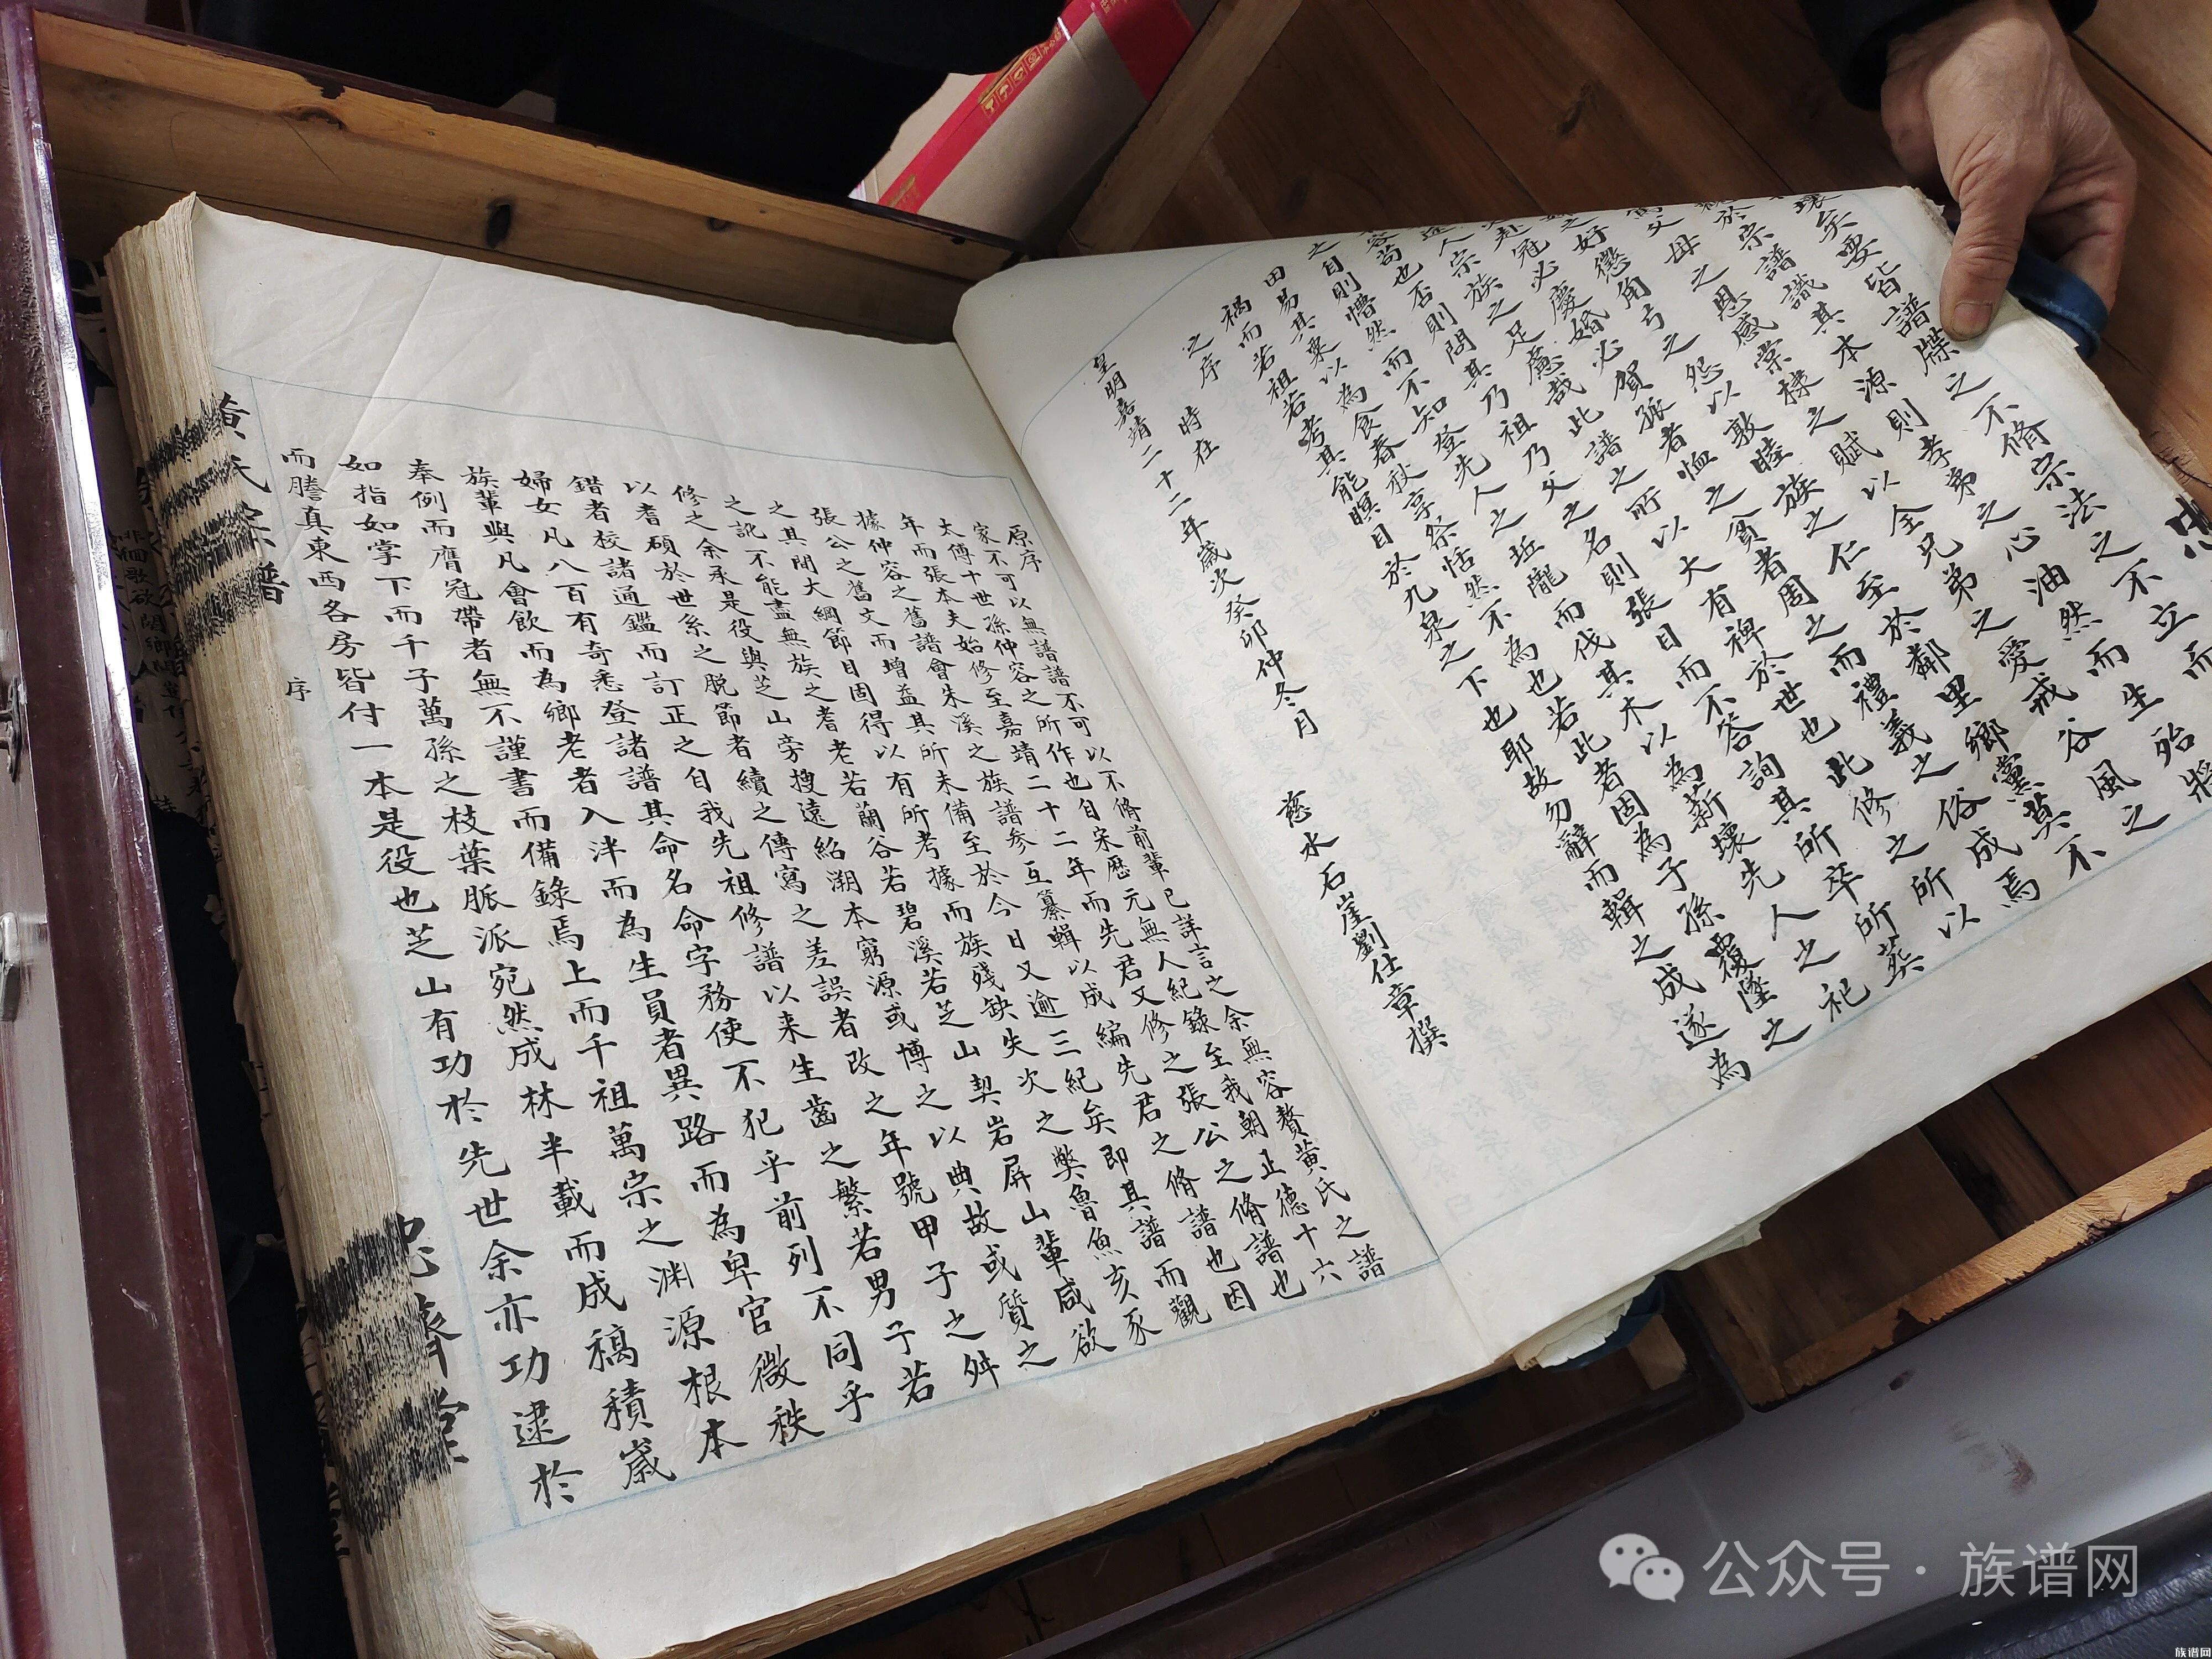 壞矣要皆譜牒之不脩宗法之不立而
於宗譜識其本源則孝弟之心油然而生
父母之恩感棠棣之賦以全兄弟之愛戒谷風之不
好懲角弓之怨以敦睦族之仁至於鄰里鄉黨莫不
冠必慶婚必賀孤者恤之貧者周之而禮義之俗成焉
人宗族之足慮哉此譜之所以大有裨於世也此修之所以
也否則問其乃祖乃父之名則張目而不答詢其所卒所葬
之日則懵然而不知登先人之坵隴而伐其木以為薪壞先人之祀
田易其粟以為食春秋享祭恬然不為也若此者固為子孫覆墜之
禍而若祖若考其能瞑目於九泉之下也耶故勿辭而輯之成遂為
之序 時在
皇明嘉靖二十二年歲次癸卯仲冬月 慈水石崖劉仕章撰
原序
家不可以無譜譜不可以不脩前輩已詳言之余無容贅黃氏之譜
太傅十世孫仲容之所作也自宋歷元無人紀錄至我朝正德十六
年而張本夫始修至嘉靖二十二年而先君又修之張公之脩譜也
據仲容之舊譜會朱溪之族譜參互纂輯以成編先君之脩譜也因
張公之舊文而增益其所未備至於今日又逾三紀矣即其譜而觀
之其間大綱節目固得以有所考據而族殘缺失次之獘魯魚亥豕
之訛不能盡無族之耆老若蘭谷若碧溪若芝山契岩屏山輩咸欲
修之余承是役與芝山旁搜遠紹溯本窮源或博之以典故或質之
以耆碩於世系之脫節者續之傳寫之差誤者改之年號甲子之舛
錯者校諸通鑑而訂正之自我先祖修譜以来生齒之繁若男子若
婦女凡八百有奇悉登諸譜其命名命字務使不犯乎前列不同乎
族輩與凡會飲而為鄉老者入泮而為生員者異路而為卑官微秩
奉例而膺冠帶者無不謹書而備錄焉上而千祖萬宗之渊源根本
如指如掌下而千子萬孫之枝葉脈派宛然成林半載而成稿積歲
而謄真東西各房皆付一本是役也芝山有功於先世余亦功逮於
序
黃氏宗譜
忠孝堂
公众号·族谱网
族谱网